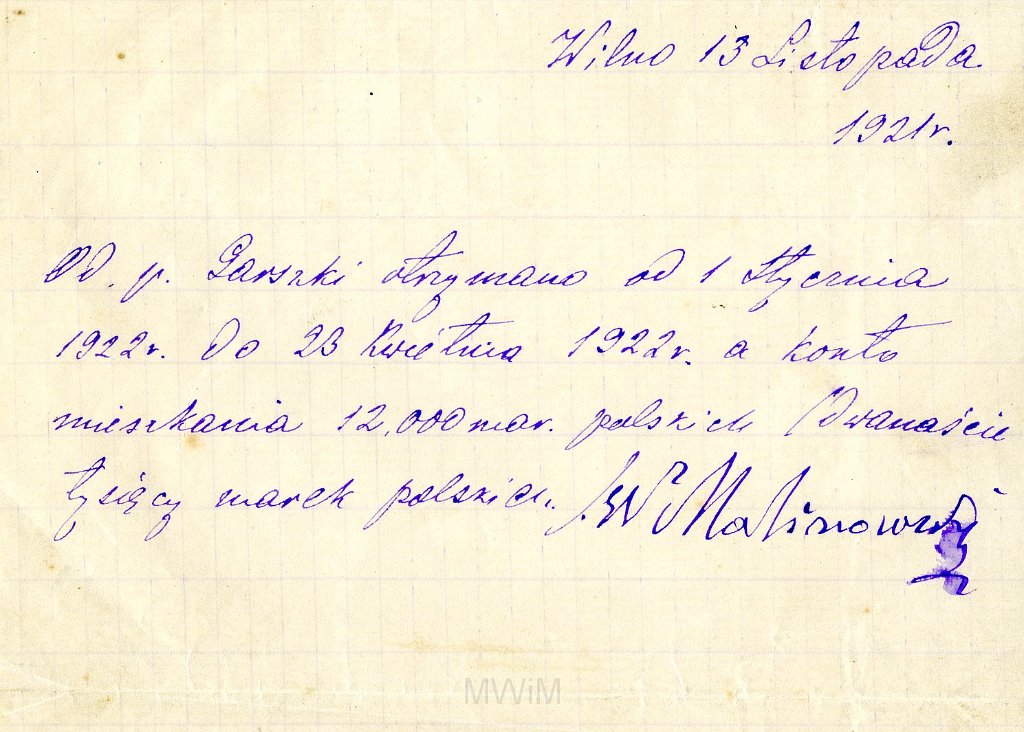 Wilno 13 Listopada
1921 r.
Od. p. Garszki otrzymano od 1 Stycznia
1922 r. do 23 Kwietnia 1922 r. a konto
mieszkania 12,000 mar. polskich (dwanaście
tysięcy marek polskich. W Malinowski
MWiM